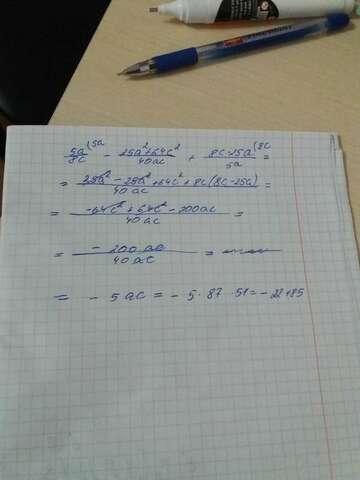 5a/8c (5a - 25a²+64c²/40ac + 8c-25a/5a (8c =
= 25a² - 25a² + 64c² + 8c(8c-25a)/40ac =
= -64c² + 64c² - 200ac/40ac =
= - 200ac/40ac =
= - 5ac = - 5·87·51 = - 22185